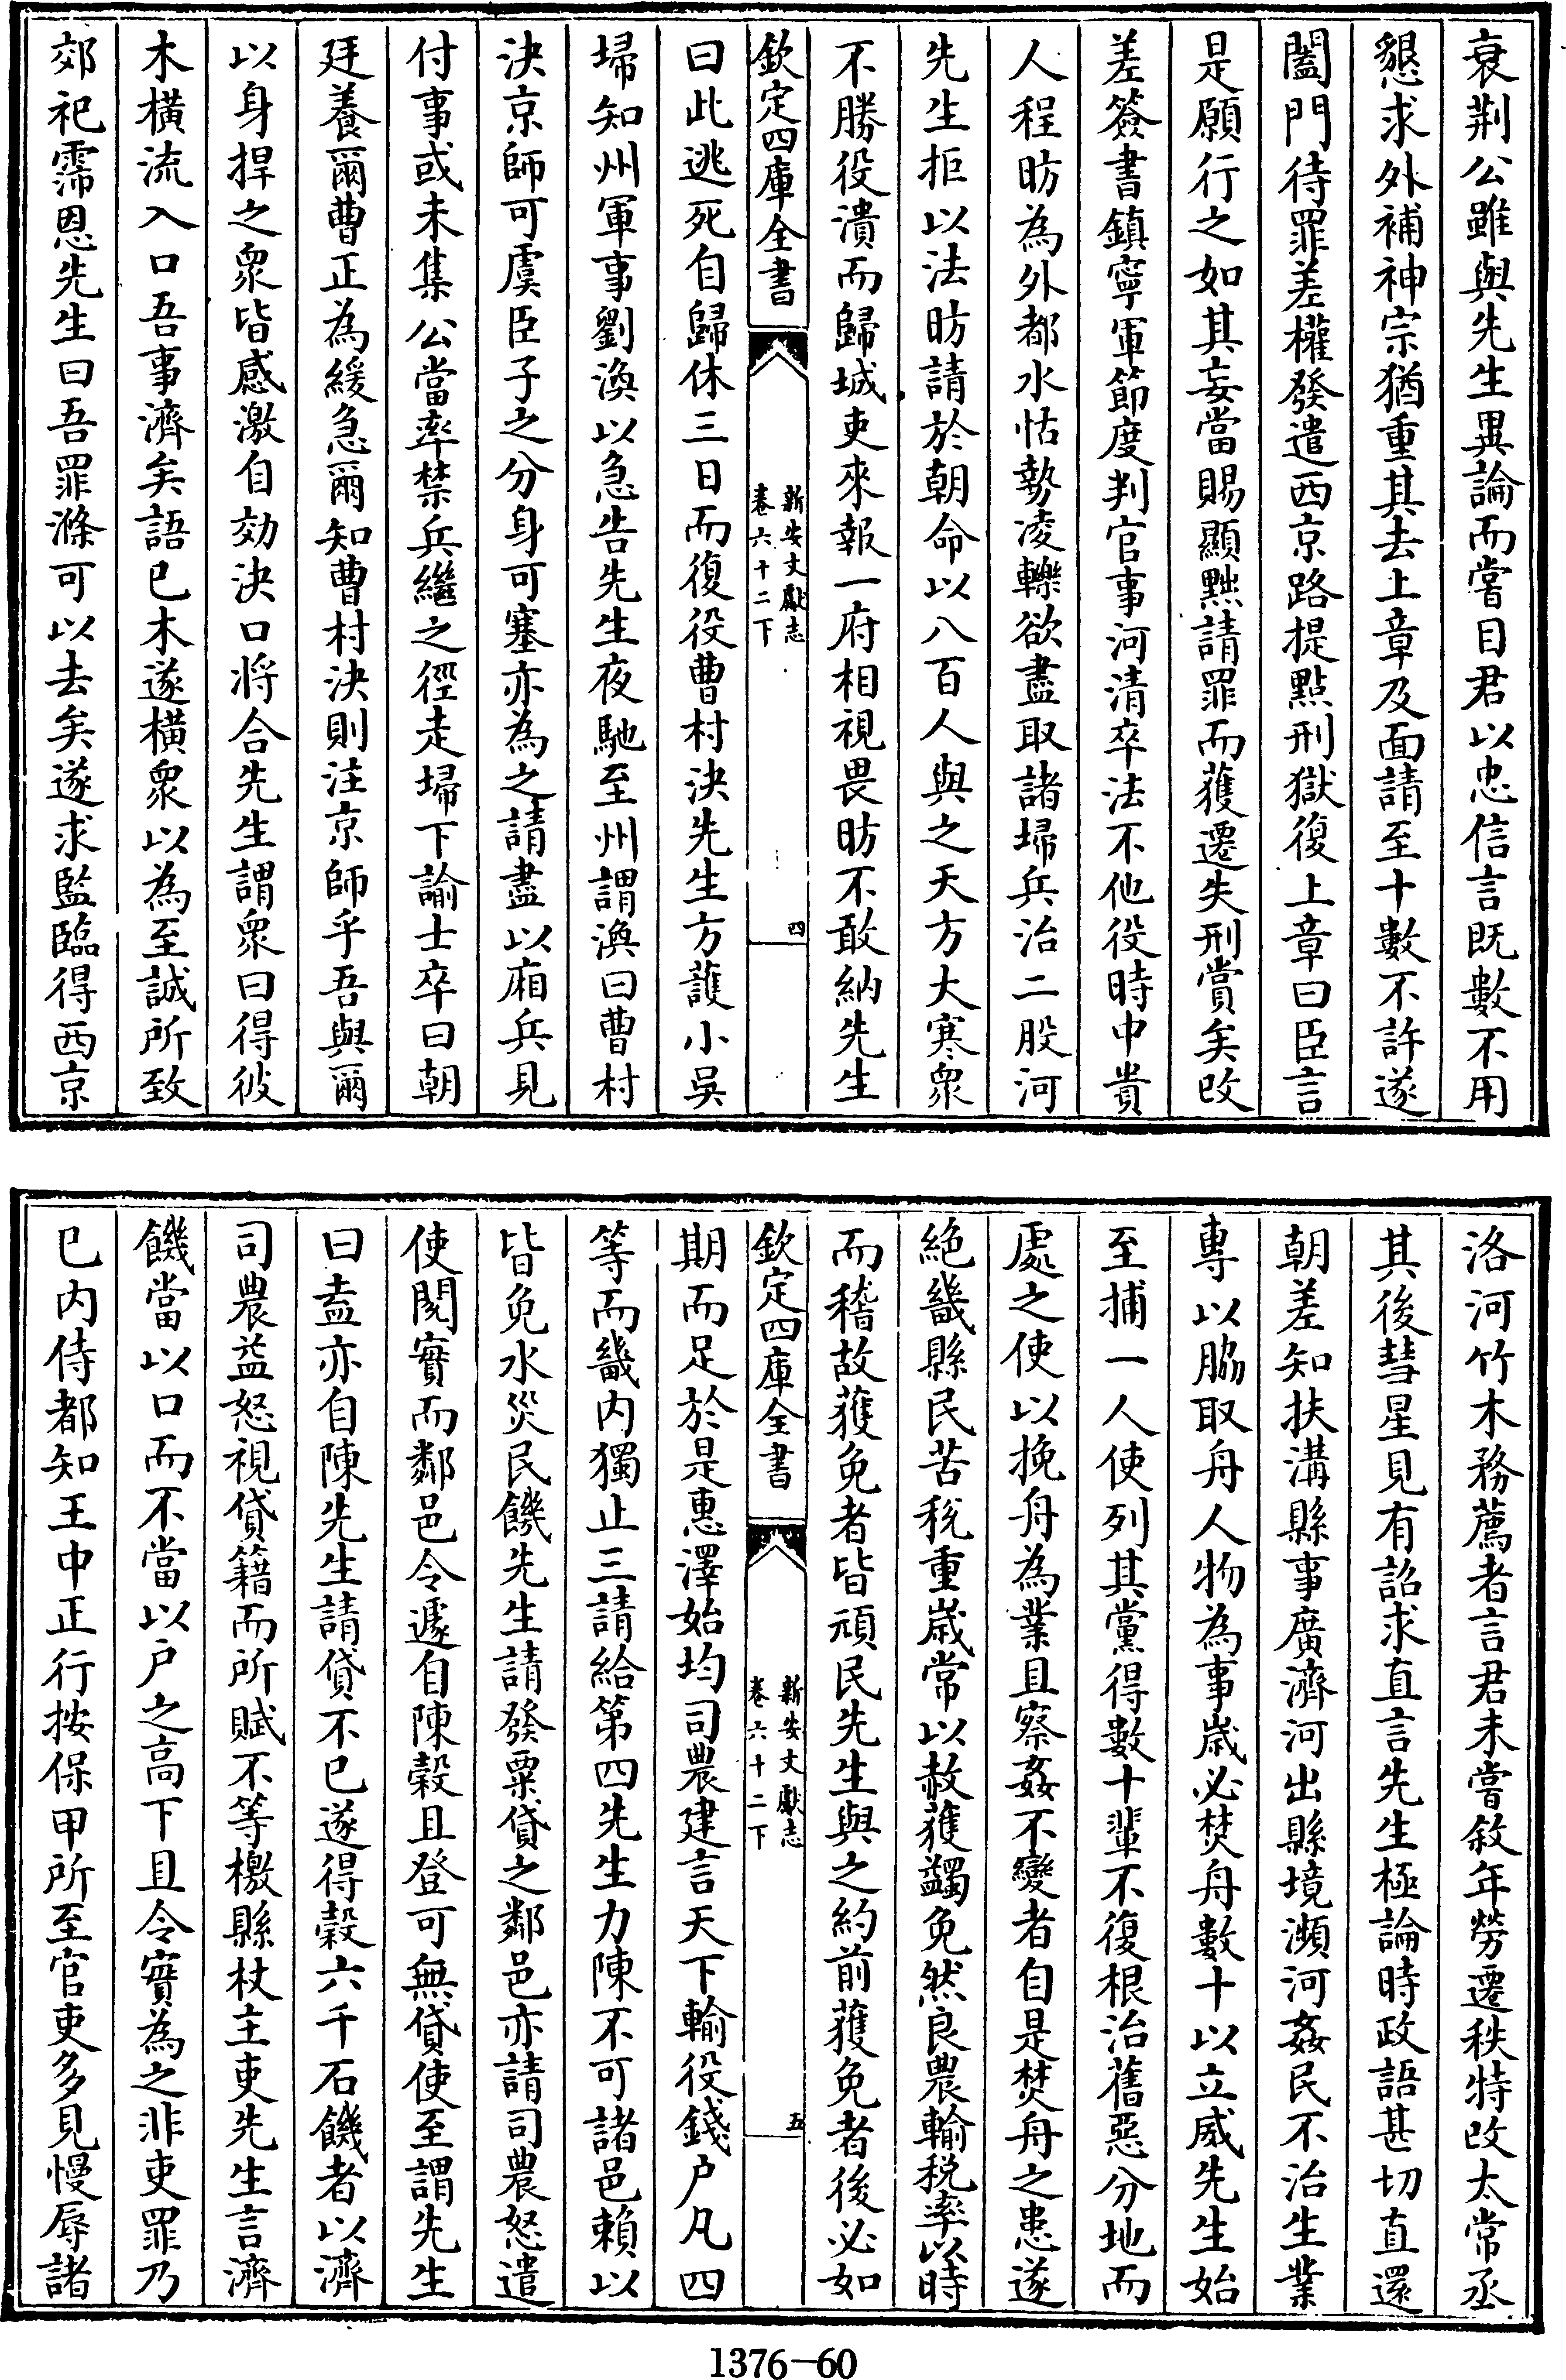 衰荆公雖與先生異論而嘗目君以忠信言既數不用
懇求外補神宗猶重其去上章及面請至十數不許遂
闔門待罪差權發遣西京路提點刑獄復上章曰臣言
是願行之如其妄當賜顯黜請罪而獲遷失刑賞矣改
差簽書鎮寧軍節度判官事河清卒法不他役時中貴
人程昉為外都水怙勢凌轢欲盡取諸埽兵治二股河
先生拒以法昉請於朝命以八百人與之天方大寒衆
不勝役潰而歸城吏來報一府相視畏昉不敢納先生
欽定四庫全書
新安文獻志
卷六十二下
四
曰此逃死自歸休三日而復役曹村決先生方護小吳
埽知州軍事劉渙以急告先生夜馳至州謂渙曰曹村
決京師可虞臣子之分身可塞亦為之請盡以廂兵見
付事或未集公當率禁兵繼之徑走埽下諭士卒曰朝
廷養爾曹正為緩急爾知曹村決則注京師乎吾與爾
以身捍之衆皆感激自効決口將合先生謂衆曰得彼
木橫流入口吾事濟矣語已木遂橫衆以為至誠所致
郊祀霈恩先生曰吾罪滌可以去矣遂求監臨得西京
洛河竹木務薦者言君未嘗敘年勞遷秩特改太常丞
其後彗星見有詔求直言先生極論時政語甚切直還
朝差知扶溝縣事廣濟河出縣境瀕河姦民不治生業
專以脇取舟人物為事歲必焚舟數十以立威先生始
至捕一人使列其黨得數十輩不復根治舊惡分地而
處之使以挽舟為業且察姦不變者自是焚舟之患遂
絶畿縣民苦稅重歲常以赦獲蠲免然良農輸稅率以時
而稽故獲免者皆頑民先生與之約前獲免者後必如
欽定四庫全書
新安文獻志
卷六十二下
五
期而足於是惠澤始均司農建言天下輸役錢户凡四
等而畿内獨止三請給第四先生力陳不可諸邑賴以
皆免水災民饑先生請發粟貸之鄰邑亦請司農怒遣
使閱實而鄰邑令遽自陳穀且登可無貸使至謂先生
曰盍亦自陳先生請貸不已遂得穀六千石饑者以濟
司農益怒視貸籍而所賦不等檄縣杖主吏先生言濟
饑當以口而不當以户之高下且令實為之非吏罪乃
已内侍都知王中正行按保甲所至官吏多見慢辱諸
1376-60